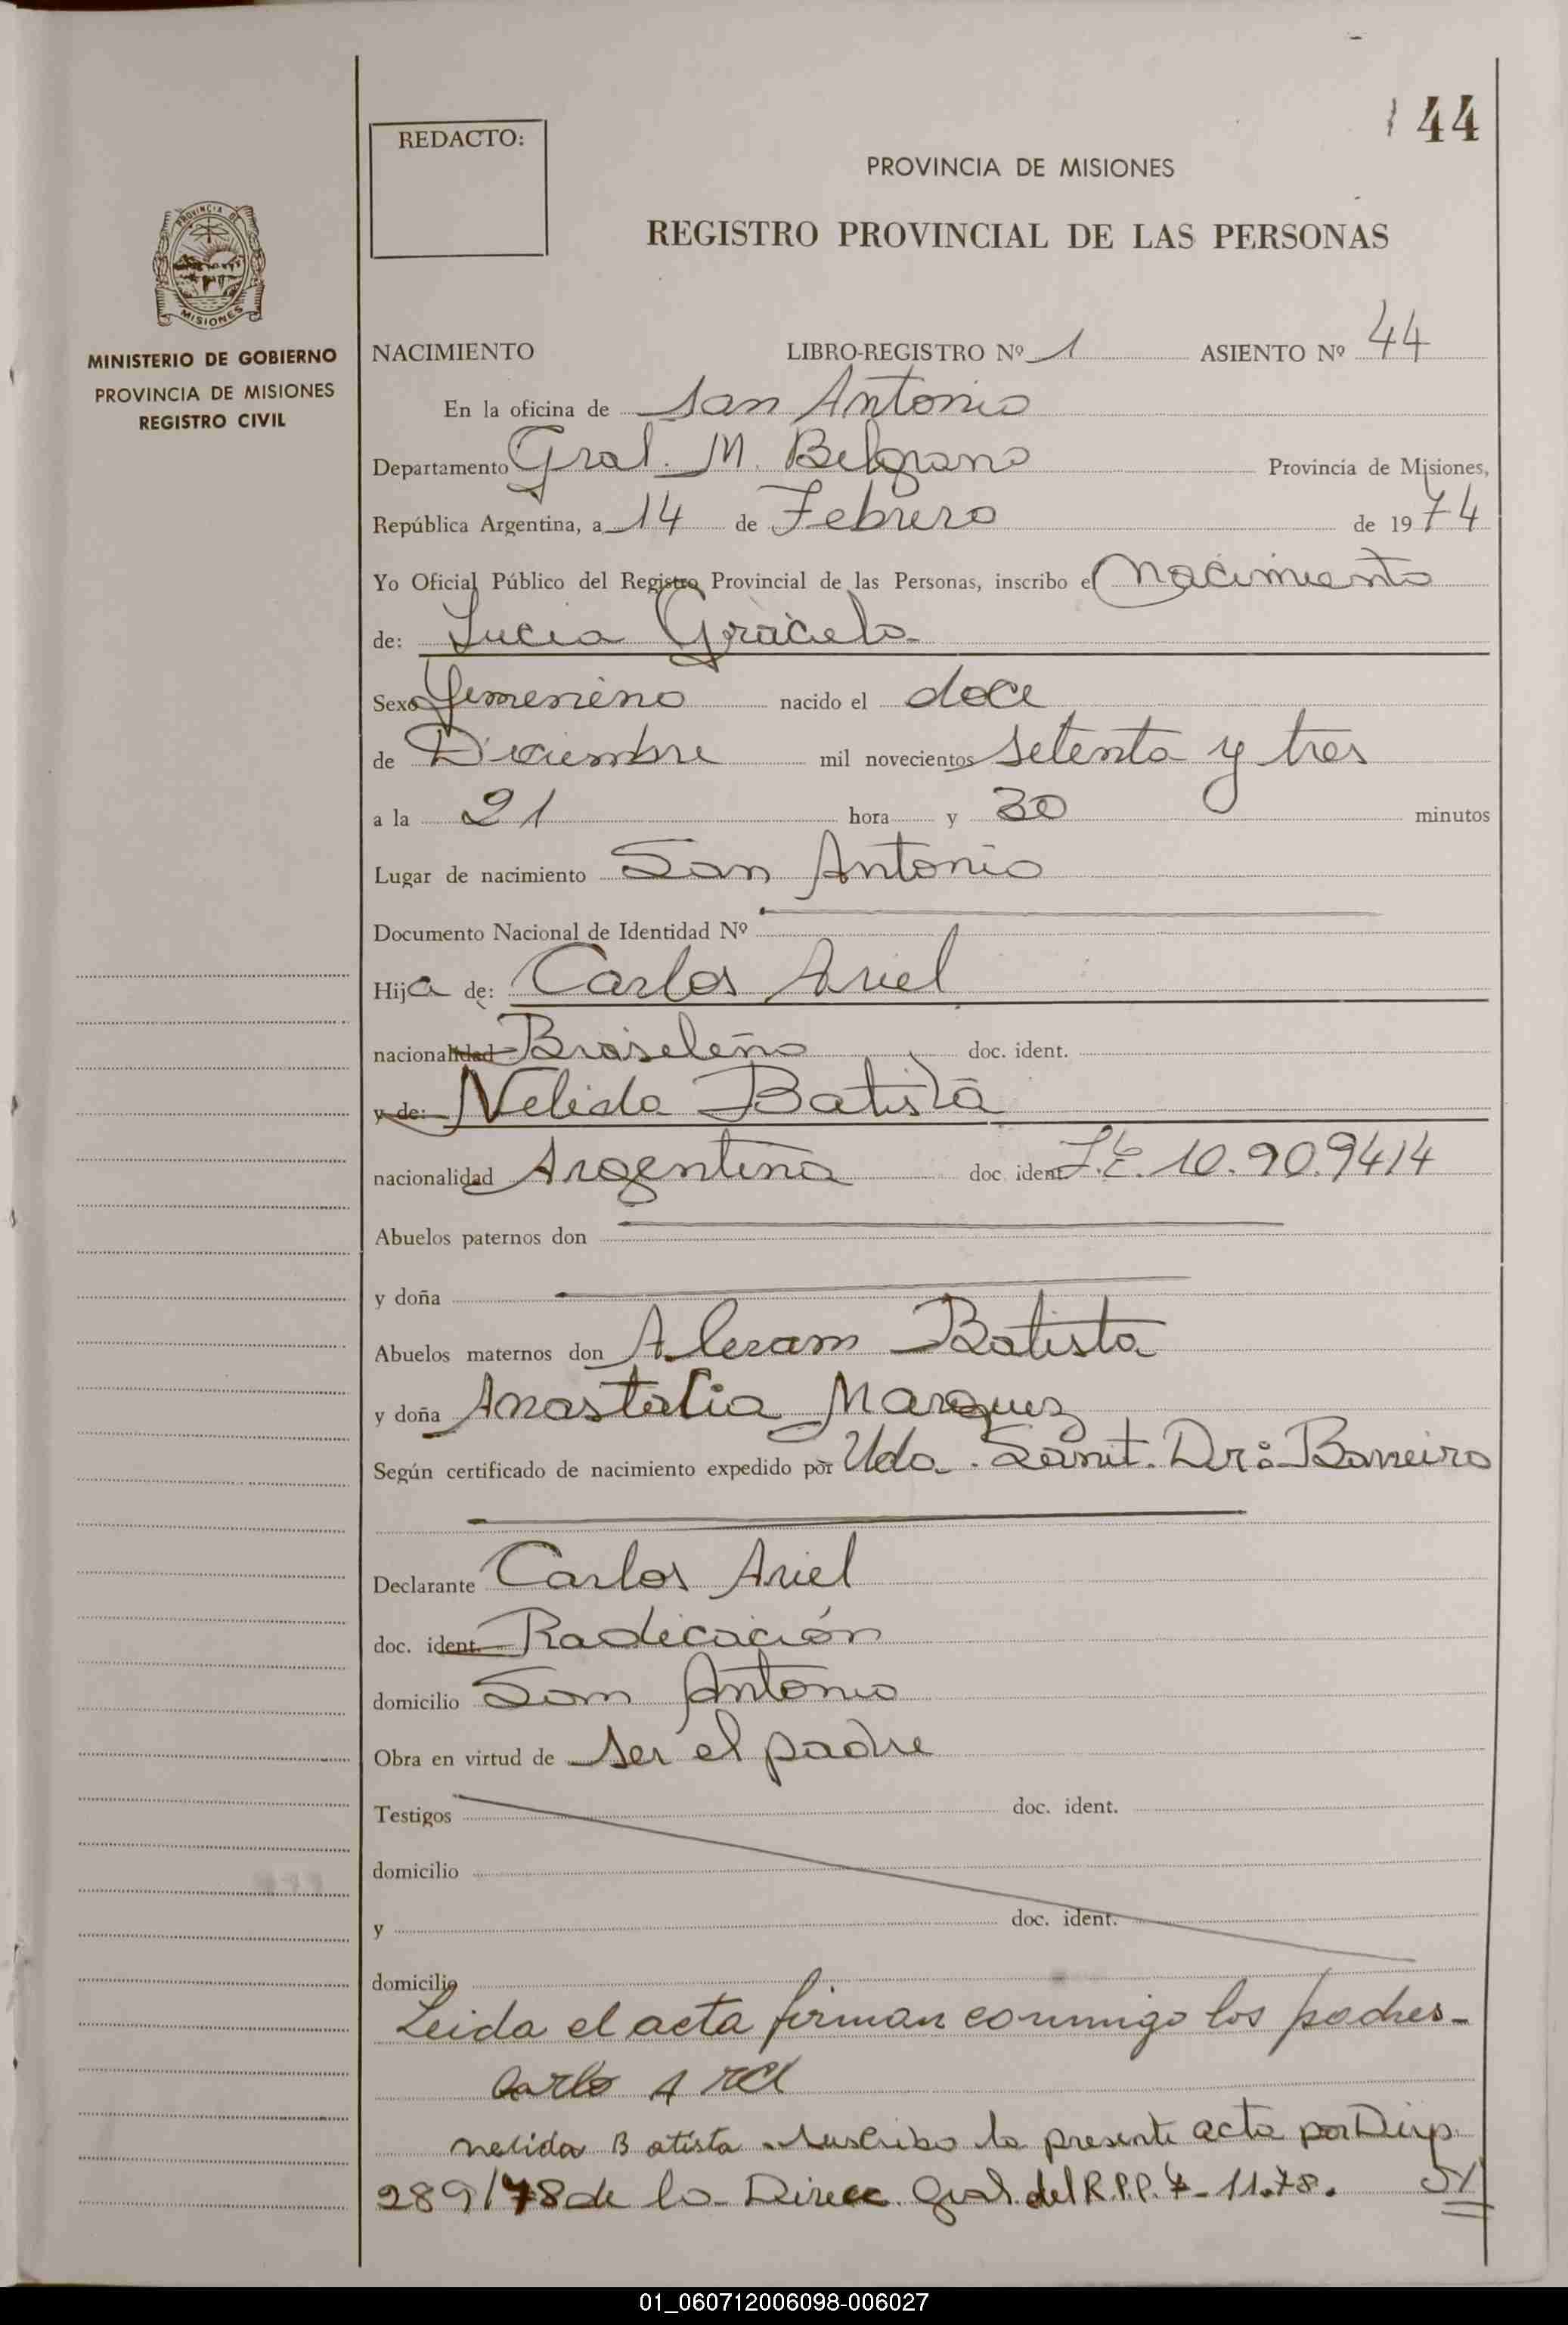 44
REDACTO:
PROVINCIA DE MISIONES
REGISTRO PROVINCIAL DE LAS PERSONAS
PROVINCIA DE
MISIONES
MINISTERIO DE GOBIERNO
PROVINCIA DE MISIONES
REGISTRO CIVIL
NACIMIENTO LIBRO-REGISTRO Nº 1 ASIENTO Nº 44
En la oficina de San Antonio
Departamento Gral. M. Belgrano Provincia de Misiones,
República Argentina, a 14 de Febrero de 1974
Yo Oficial Público del Registro Provincial de las Personas, inscribo el Nacimiento
de: Lucia Graciela
Sexo femenino nacido el doce
de Diciembre mil novecientos setenta y tres
a la 21 hora y 30 minutos
Lugar de nacimiento San Antonio
Documento Nacional de Identidad Nº
Hija de: Carlos Ariel
nacionalidad Brasileño doc. ident.
y de: Nelida Batista
nacionalidad Argentina doc. ident. 10.90.9414
Abuelos paternos don
y doña
Abuelos maternos don Batista
y doña Anastacia Marquez
Según certificado de nacimiento expedido por Uda. Sanit. Dr: Barreiro
Declarante Carlos Ariel
doc. ident. Radicación
domicilio San Antonio
Obra en virtud de ser el padre
Testigos doc. ident.
domicilio
y doc. ident.
domicilio
Leida el acta firman conmigo los padres-
Carlo A
nelida Batista suscribo la presente acta por Disp.
289/78 de la Direcc. Gral. del R.P.P. 7-11.78.
01_060712006098-006027